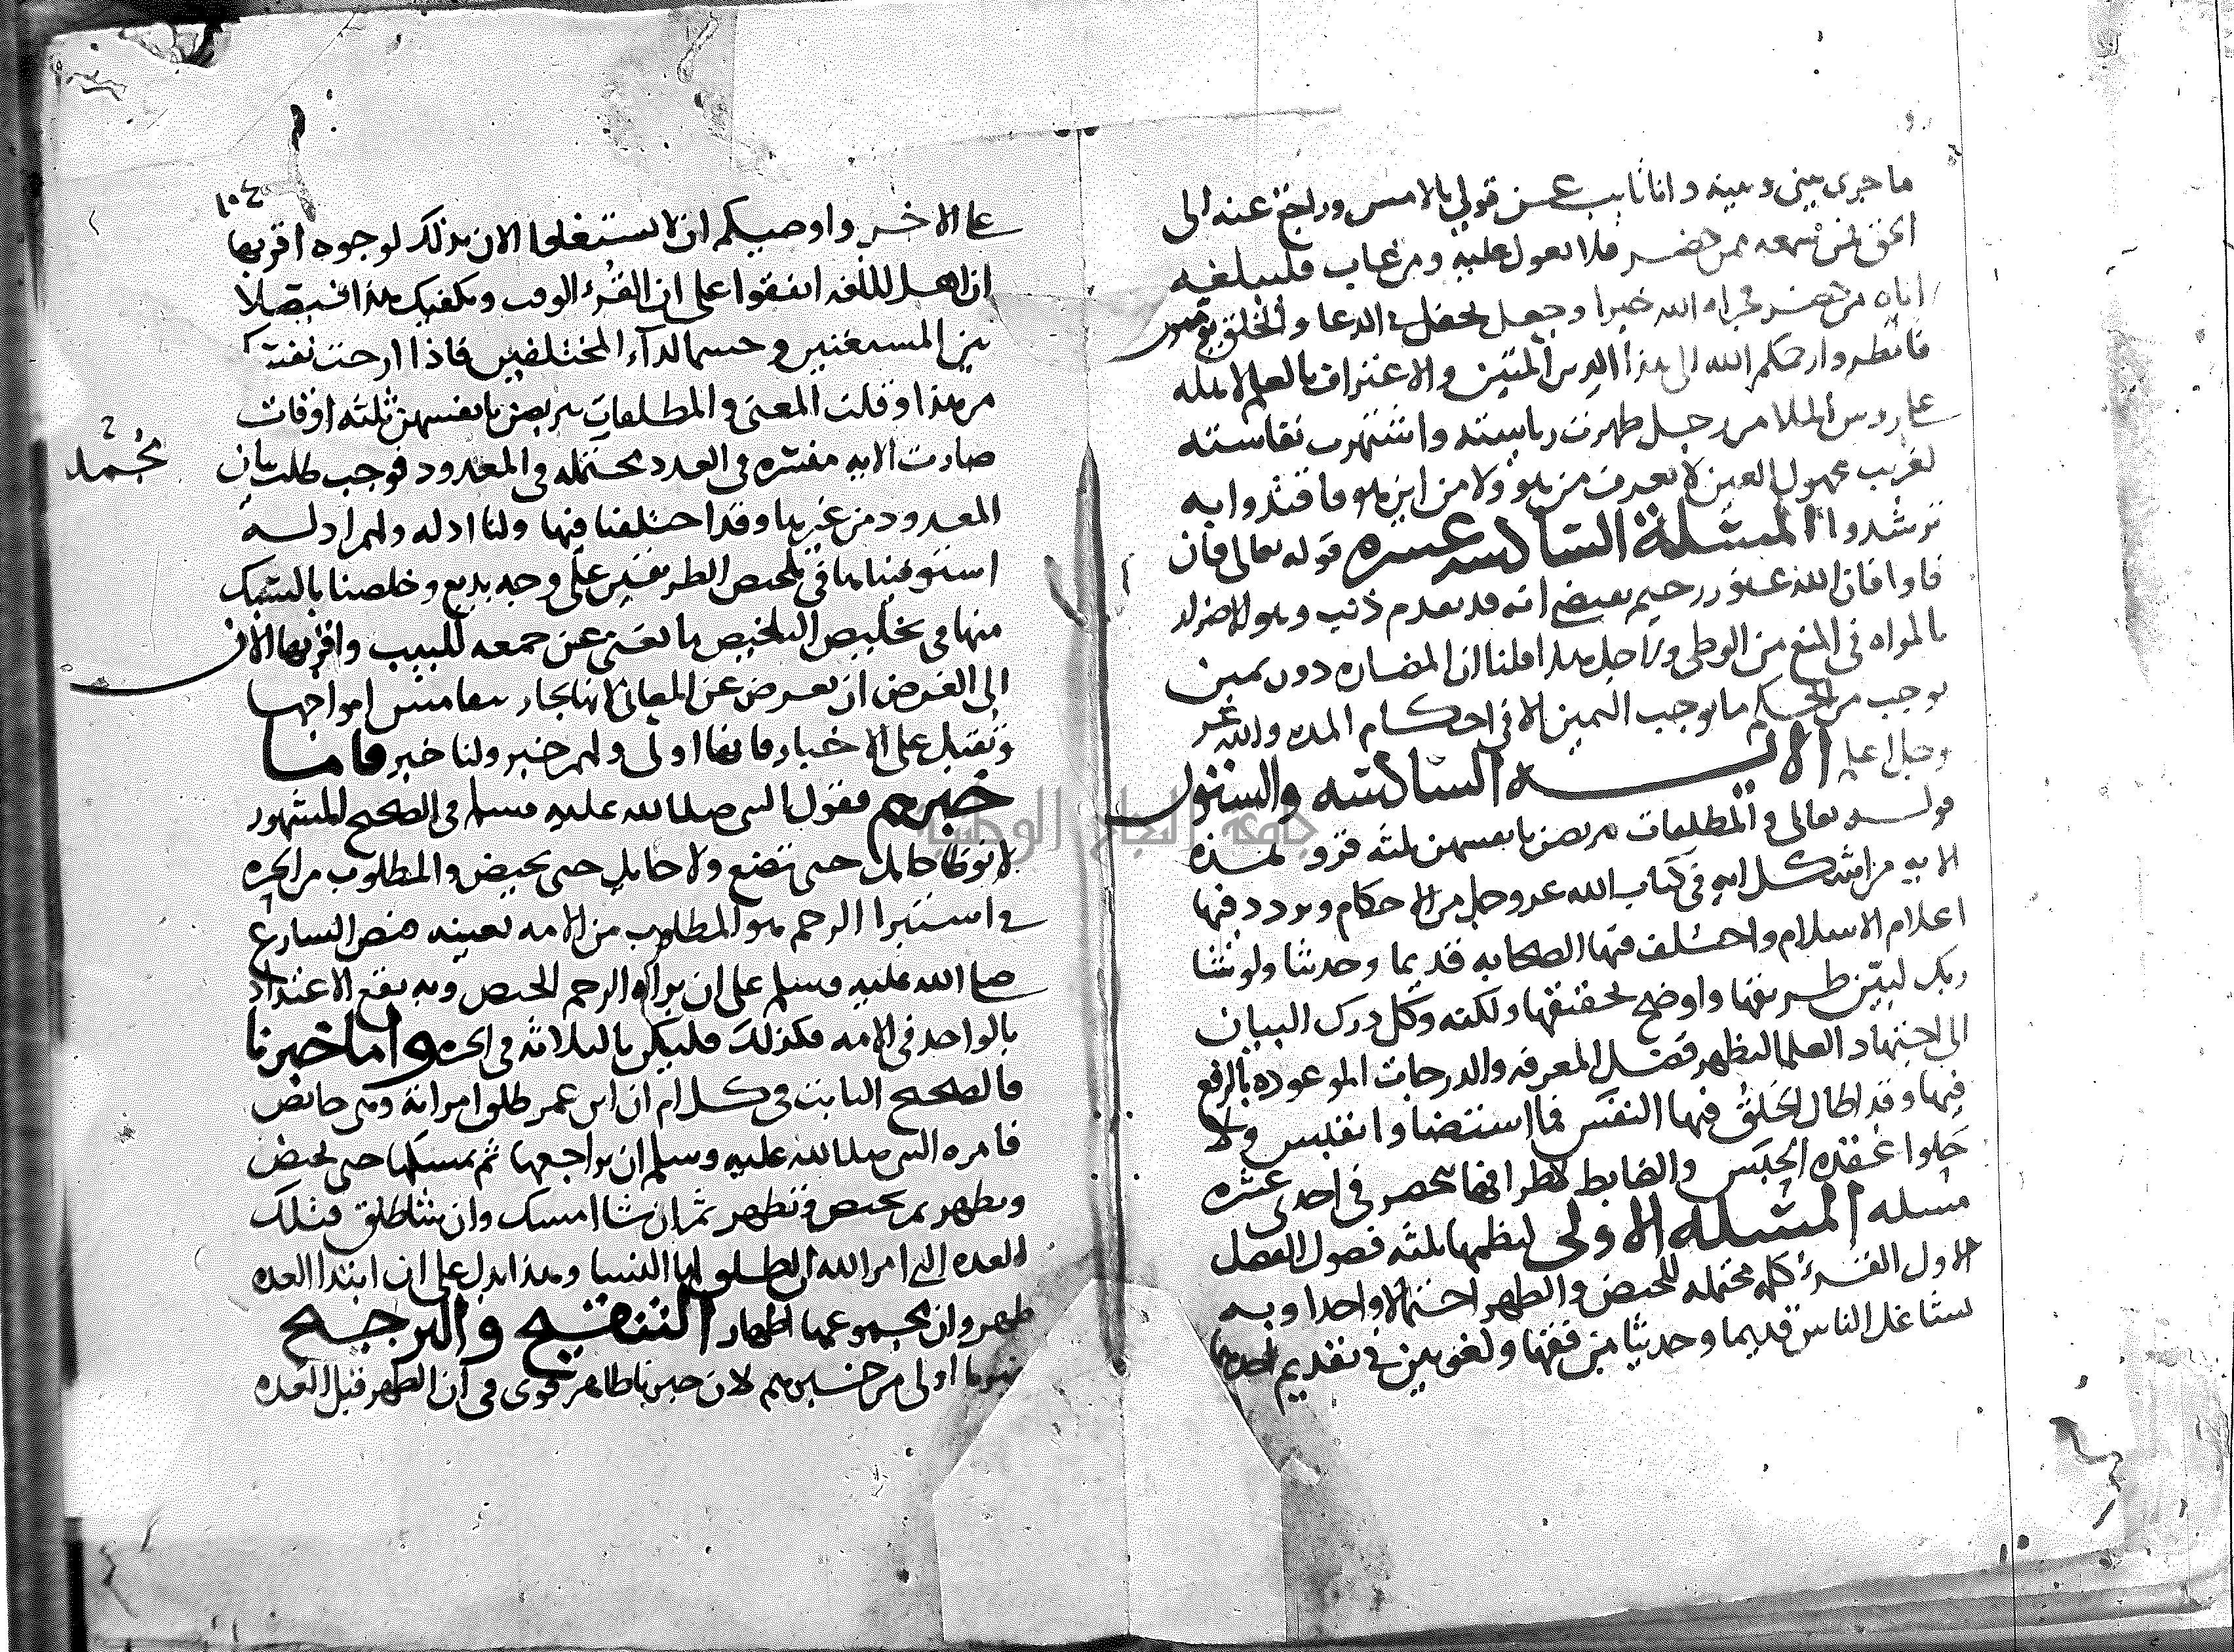 ما جرى بيني وبينه وانا تايب عن قولي بالامس وراجع عنه الى
الحق فمن سمعه ممن حضر فلا يعول عليه ومن غاب فليبلغه
اياه من حضر فجزاه الله خيرا وجعل يحفل في الدعا والخلق يومنون
فانظروا رحمكم الله الى هذا الدين المتين والاعتراف بالعلم لاهله
على روس الملا من رجل ظهرت رياسته واشتهرت نفاسته
لغريب مجهول العين لا يعرف من هو ولا من اين هو فاقتدوا به
ترشدوا المسئلة السادسة عشره قوله تعالى فان
فاوا فان الله غفور رحيم يقتضي انه قد تقدم ذنب وهو الاضرار
بالمراه في المنع من الوطي ولاجل هذا قلنا ان المضاره دون يمين
توجب من الحكم ما يوجب اليمين الا في احكام المده والله عز
وجل اعلم الايـــه السادسه والستون
قولـــه تعالى والمطلقات يتربصن بانفسهن ثلثه قروء هذه
الايه من اشكل ايه في كتاب الله عز وجل من الاحكام وتردد فيها
اعلام الاسلام واختلف فيها الصحابه قديما وحديثا ولو شا
ربك لبين طريقها واوضح تحقيقها ولكنه وكل درك البيان
الى اجتهاد العلما ليظهر فضل المعرفه والدرجات الموعوده بالرفع
فيها وقد اطال الخلق فيها النفس فما استضاوا بقبس ولا
حلوا عقده الحبس والضابط لاطرافها ينحصر في احدى عشره
مسله المسئله الاولى لنظمها ثلثه فصول الفصل
الاول القرء كلمه محتمله للحيض والطهر احتمالا واحدا وبه
تشاغل الناس قديما وحديثا من فقها ولغويين في تقديم احدهما
١٠٤
على الاخر واوصيكم ان لا تشتغلوا الان بذلك لوجوه اقربها
ان اهل اللغه اتفقوا على ان القرء الوقت ويكفيك هذا فيصلا
بين المتشعبين وحسما لداء المختلفين فاذا ارحت نفسك
من هذا وقلت المعنى والمطلقات يتربصن بانفسهن ثلثه اوقات
صارت الايه مفسره في العدد محتمله في المعدود فوجب طلب بيان
المعدود من غيرها وقد اختلفنا فيها ولنا ادله ولهم ادلـــه
استوفيناها في تلخيص الطريقتين على وجه بديع وخلصنا بالسبك
منها في تخليص التلخيص ما يغني عن جمعه للبيب واقربها الان
الى الغرض ان تعرض عن المعاني لانها بحار تتقامس امواجها
وتقبل على الاخبار فانها اولى ولهم خبر ولنا خبر فاما
خبرهم فقول النبي صلى الله عليه وسلم في الصحيح المشهور
لا توطا حامل حتى تضع ولا حايل حتى تحيض والمطلوب من الحره
في استبرا الرحم هو المطلوب من الامه بعينه فنص الشارع
صلى الله عليه وسلم على ان براه الرحم الحيض وبه يقع الاعتداد
بالواحد في الامه فكذلك فليكن بالثلاثه في الحره واما خبرنا
فالصحيح الثابت في كل ام ان ابن عمر طلق امراته وهي حائض
فامره النبي صلى الله عليه وسلم ان يراجعها ثم يمسكها حتى تحيض
وتطهر ثم تحيض وتطهر ثم ان شا امسك وان شا طلق فتلك
العده التي امر الله ان يطلق لها النسا وهذا يدل على ان ابتدا العده
طهر وان مجموعها اطهار التنقيح والترجيح
خبرنا اولى من خبرهم لان خبرنا ظاهر قوي في ان الطهر قبل العده